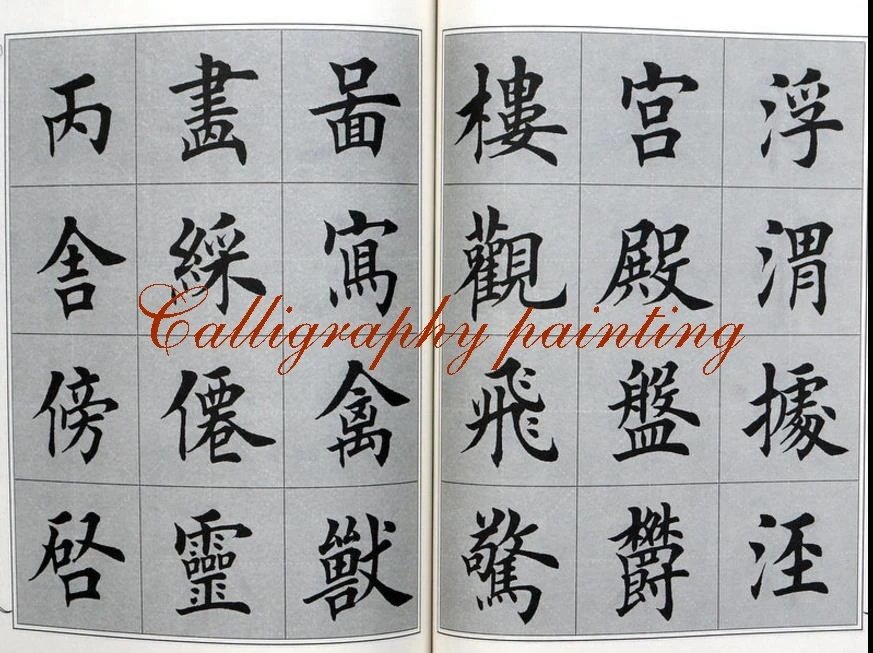 浮渭據涇
宮殿盤鬱
樓觀飛驚
圖寫禽獸
畫綵僊靈
丙舍傍啓
Calligraphy painting